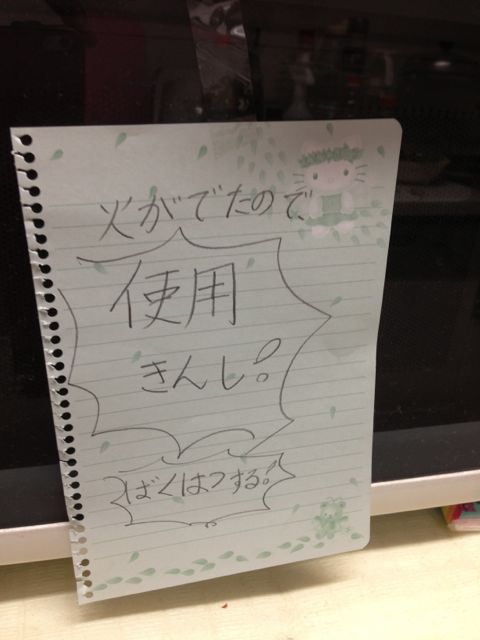 火がでたので、
使用
きんし!
ばくはつする!